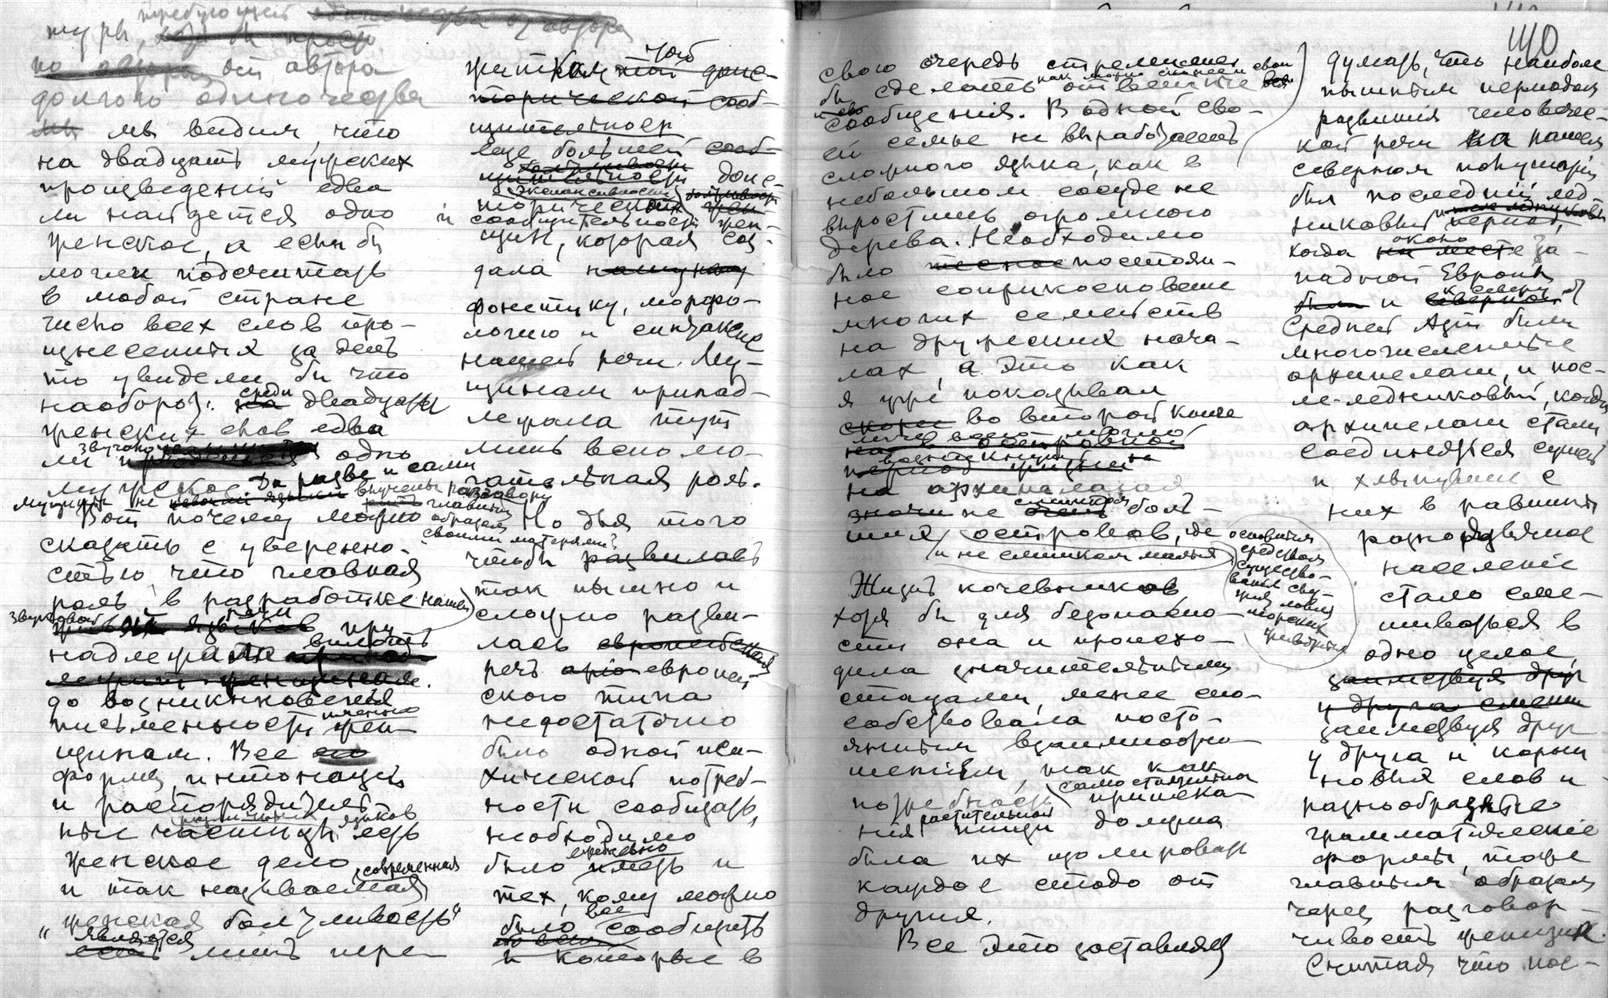 требующей
туры,
от автора
долгого одиночества
мы видим что
на двадцать мужских
произведений едва
ли найдется одно
женское, а если бы
могли подсчитать
в любой стране
число всех слов про-
изнесенных за день
то увидели бы что
наоборот: среди двадцати
женских слов едва
ли одно
мужское. Да разве и сами
мужчины не выучены разговору
главным
образом
своими матерями?
Вот почему можно
сказать с уверенно-
стью, что главная
роль в разработке нашей
звуковой речи при-
надлежала вплоть
до возникновения
письменности именно жен-
щинам. Все
формы, интонации
и распорядитель-
ные частицы языков
есть
женское дело
и так называемая современная
"женская болтливость"
является лишь пере-
житком той
еще большей
экспансивности
и сообщительности жен-
щин, которая соз-
дала
фонетику, морфо-
логию и синтаксис
нашей речи. Му-
щинам принад-
лежала тут
лишь вспомо-
гательная роль.
Но для того
чтобы
так пышно и
сложно разви-
лась
речь европей-
ского типа
недостаточно
было одной пси-
хической потреб-
ности сообщать,
необходимо
было иметь и
тех, кому можно
было все сообщить
и которые в
110
свою очередь стремились
бы сделать как можно ответные свои
сообщения. В одной сво-
ей семье не выработаешь
сложного языка, как в
небольшом сосуде не
вырастишь огромного
дерева. Необходимо
было постоян-
ное соприкосновение
многих семейств
на дружеских нача-
лах, а это как
я уже показывал
во второй книге
на архипелагах
не слишком боль-
ших островов, где
и не слишком малых
основным
средством
существо-
вания слу-
жил ловля
морских
животных
Жизнь кочевников,
хотя бы для безопасно-
сти она и происхо-
дила значительными
стадами, менее спо-
собствовала посто-
янным взаимоотно-
шениям, так как
потребность самостоятельна
прииска-
ния растительной пищи должна
была их изолировать
каждое стадо от
других.
Все это заставляет
думать, что наиболее
пышным периодом
развития человечес-
кой речи на нашем
северном полушарии
был последний лед-
никовый период,
когда около за-
падной Европы
и к северу от
Средней Азии были
многочисленные
архипелаги, и пос-
ле-ледниковый, когда
архипелаги стали
соединяться сушей
и хлынувшее с
них в равнины
разнородное
население
стало сме-
шиваться в
одно целое,
заимствуя друг
у друга и корни
новых слов и
разнообразные
грамматические
формы, тоже
главным образом
через разговор-
чивость женщин.
Считая что пос-